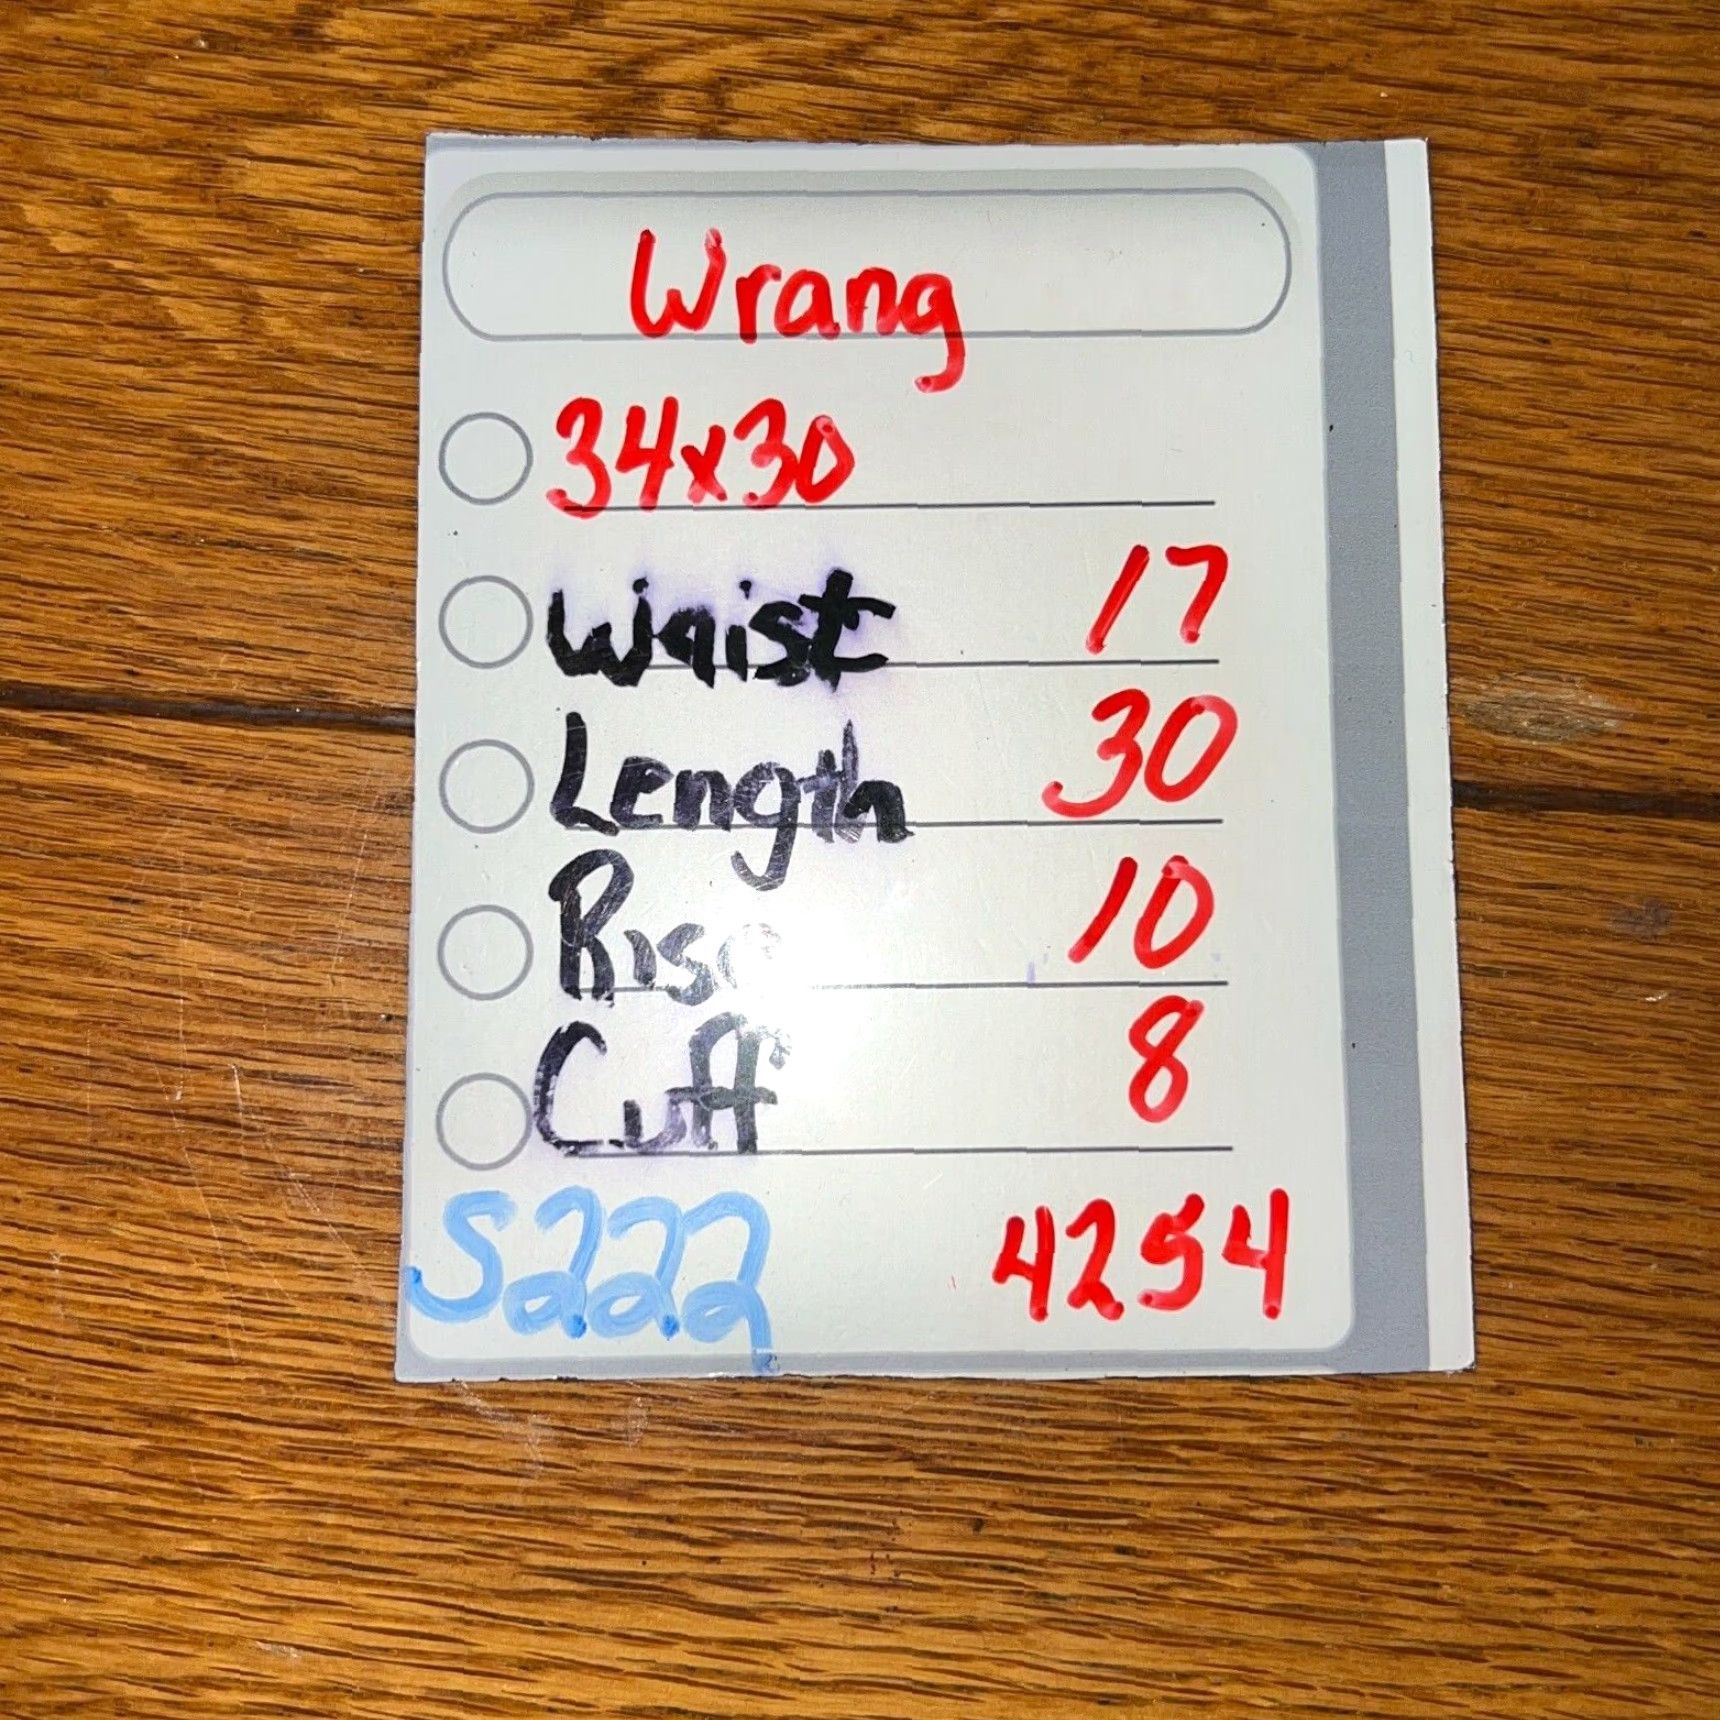 Wrang
34x30
Waist 17
Length 30
Rise 10
Cuff 8
S222 4254